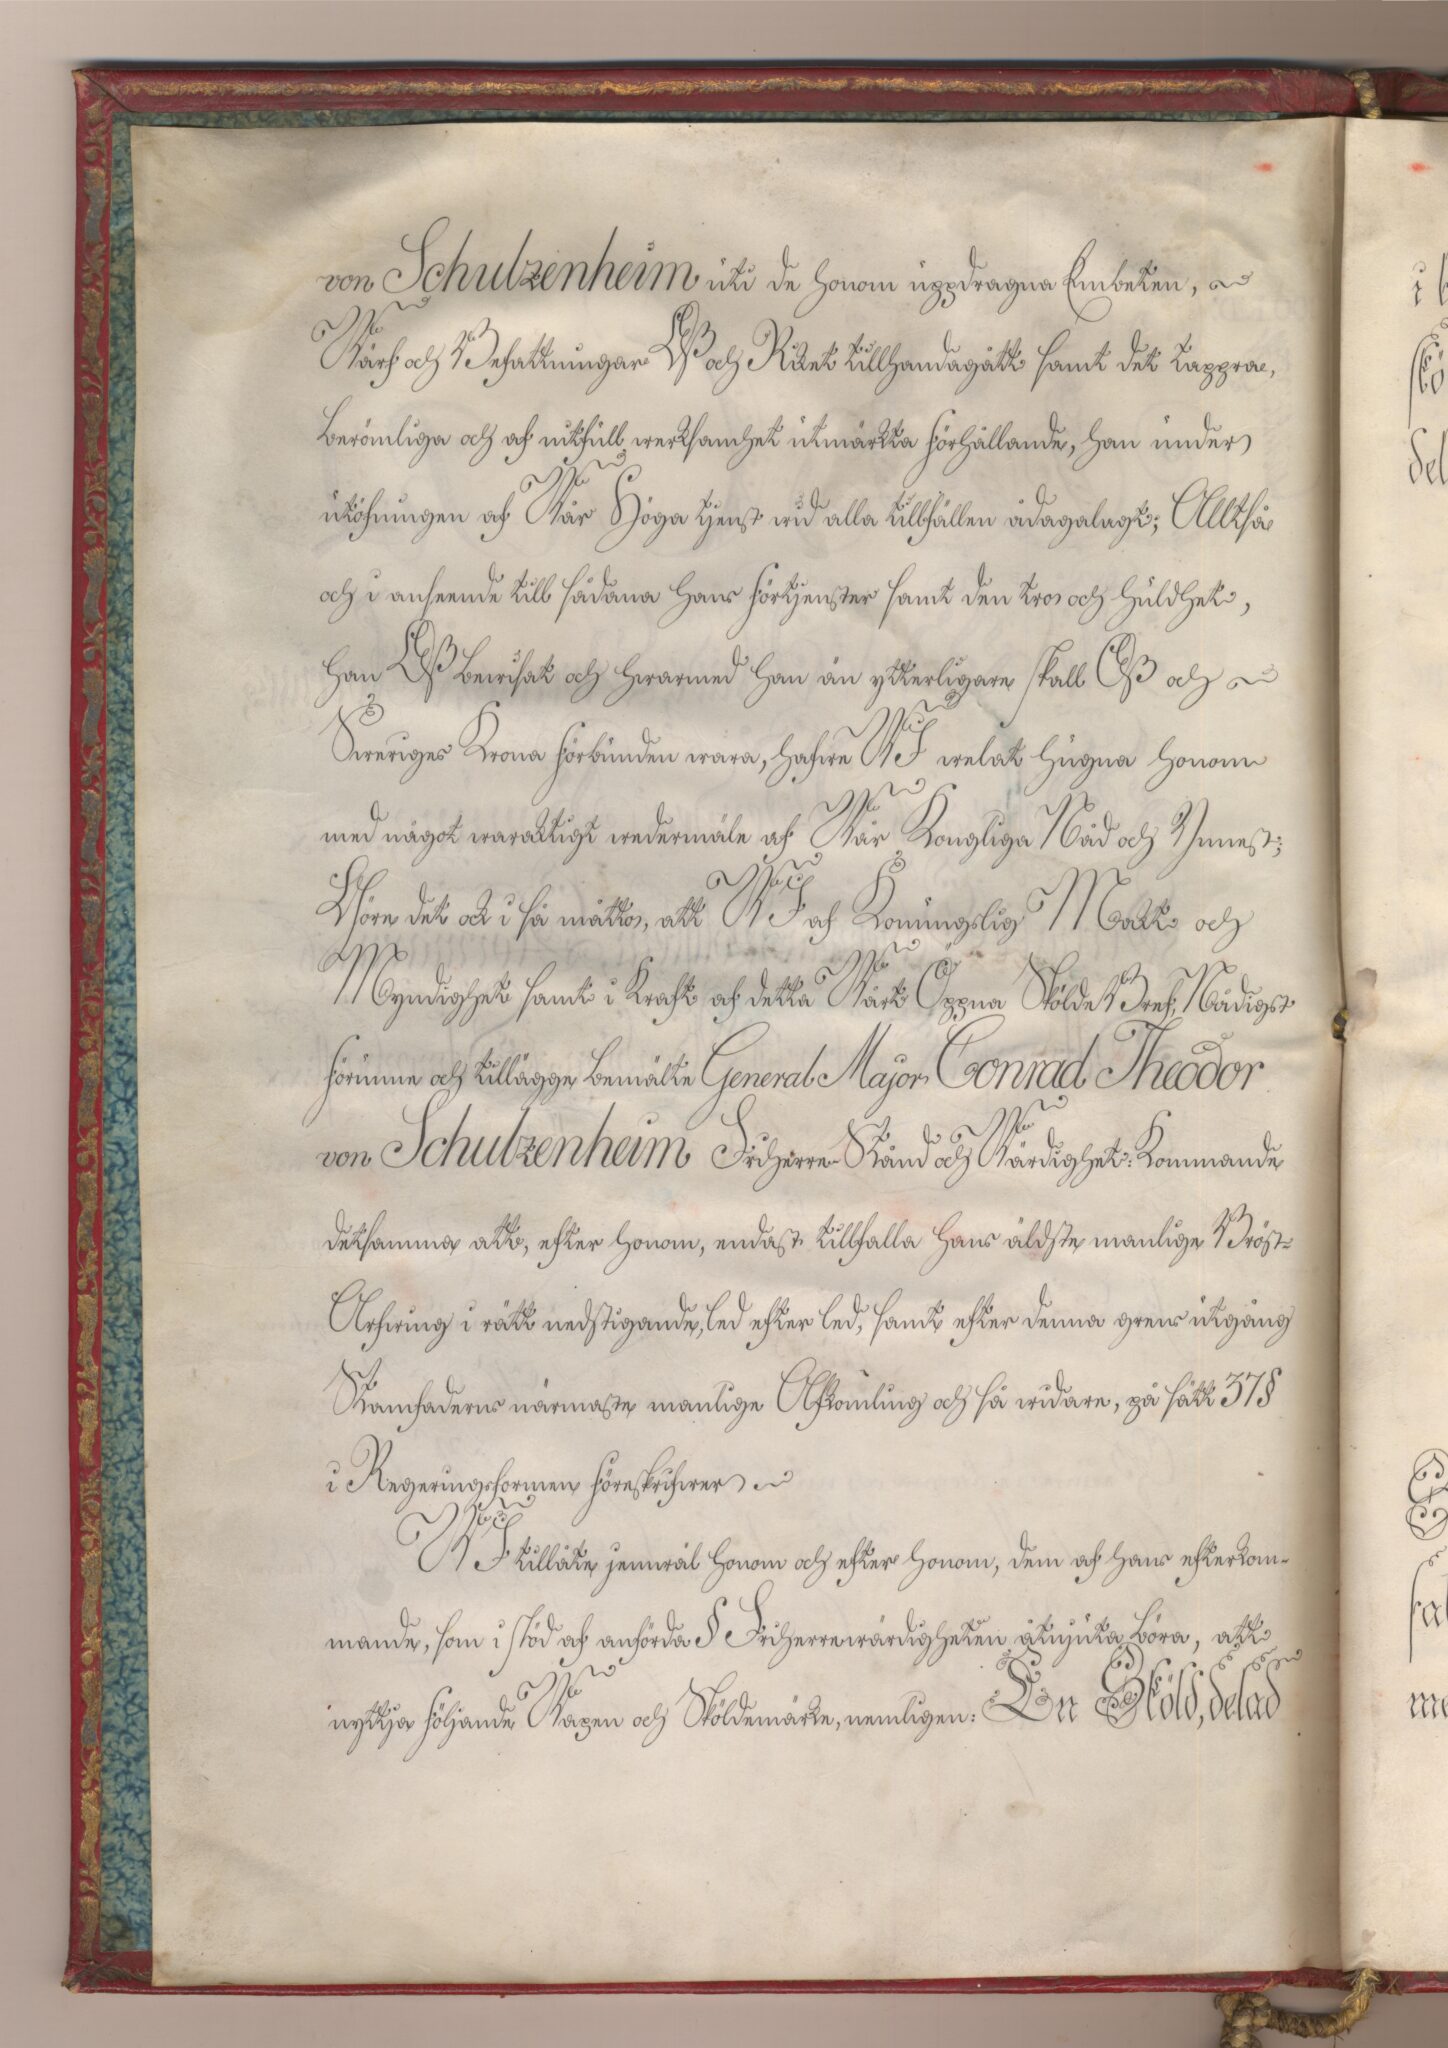 von Schulzenheim uti de honom uppdragna Embeten,
Värf och Befattningar Oß och Riket tillhandagått samt det tappra,
berömliga och af nitfull werksamhet utmärkta förhållande, han under
utöfningen af Wår Höga tjenst wid alla tillfällen ådagalagt; Alltså
och i anseende till sådana hans förtjenster samt den tro och huldhet,
han Oß bewisat och hwarmed han än ytterligare skall Oß och
Sweriges Krona förbunden wara, hafwe WJ welat hugna honom
med något waraktigt wedermäle af Wår Kongliga Nåd och Ynnest;
Göre det ock i så måtto, att WJ af Konungslig Makt och
Myndighet samt i kraft af detta Wårt Öppna Sköldebref, Nådigst
förunne och tillägge bemälte General Majoren Conrad Theodor
von Schulzenheim Friherre-Stånd och Wärdighet: Kommande
detsamma att, efter honom, endast tillfalla hans äldste manlige Bröst-
Arfwing i rätt nedstigande, led efter led, samt efter denna grens utgång
Stamfaderns närmaste manlige Afkomling och så widare, på sätt 37§
i Regeringsformen föreskrifwer
WJ tillåte jemwäl honom och efter honom, dem af hans efterkom-
mande, som i stöd af anförda § Friherrewärdigheten åtnjuta böra, att
nyttja följande Wapen och Sköldemärke, nemligen: En Sköld, delad